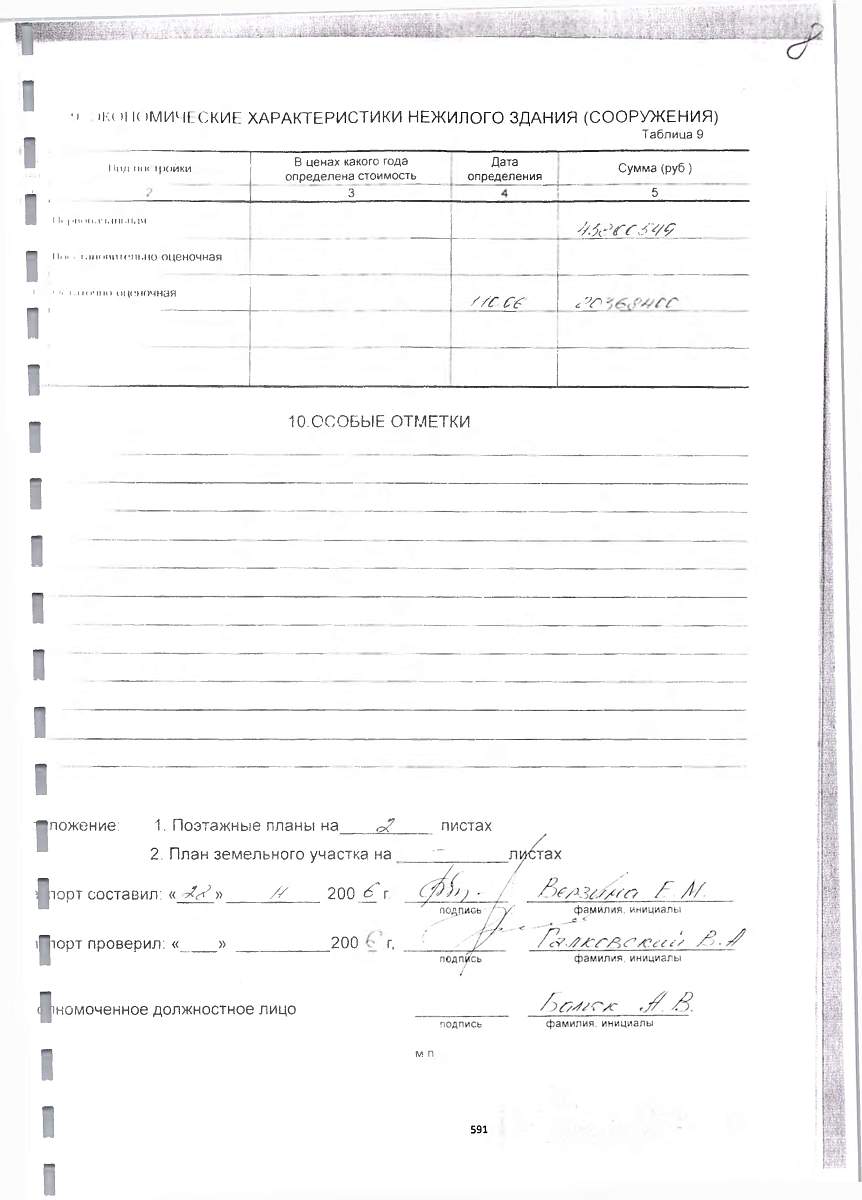 8
9. ЭКОНОМИЧЕСКИЕ ХАРАКТЕРИСТИКИ НЕЖИЛОГО ЗДАНИЯ (СООРУЖЕНИЯ)
Таблица 9
постройки В ценах какого года определена стоимость Дата определения Сумма (руб )
2 3 4 5
Первоначальная 43200549
Восстановительно оценочная
Остаточно оценочная 11.06 20368400
10.ОСОБЫЕ ОТМЕТКИ
ложение: 1. Поэтажные планы на 2 листах
2. План земельного участка на - листах
порт составил: « 28 » 11 200 6 г. Верзина Е. М.
подпись фамилия, инициалы
порт проверил: « » 200 6 г, Галковский В.А
подпись фамилия, инициалы
олномоченное должностное лицо А.В.
подпись фамилия, инициалы
м п
591